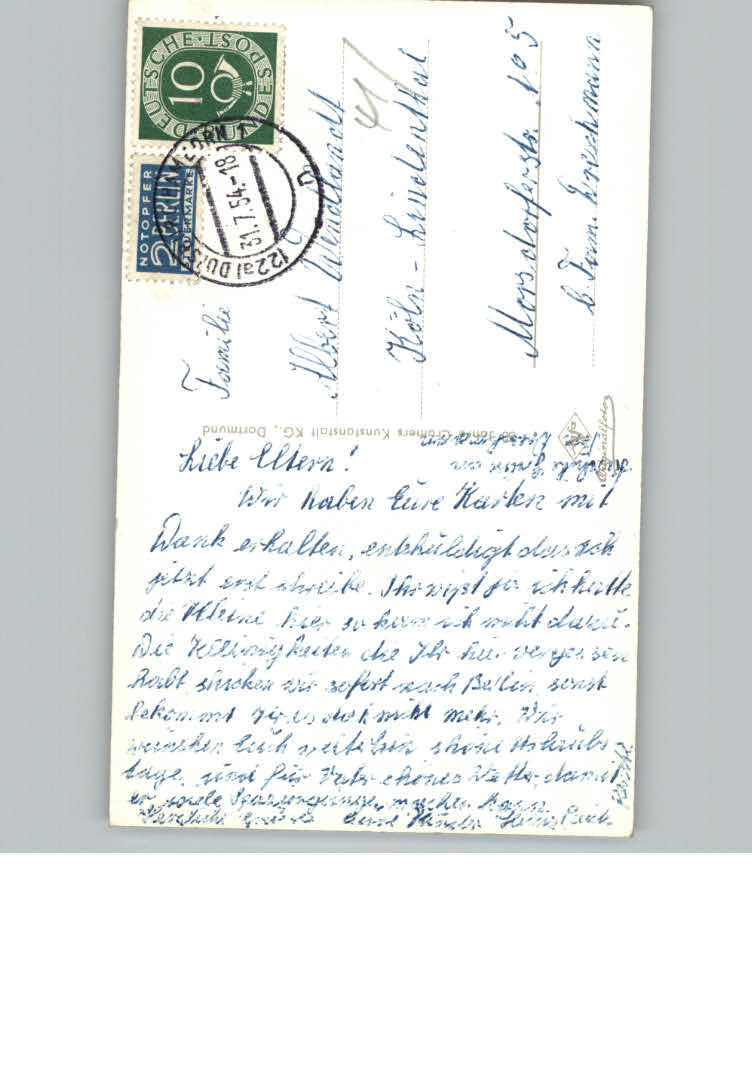 DEUTSCHE BUNDESPOST
10
NOTOPFER
2 BERLIN
STEUERMARKE
(22a) DUISBURG-HAMBORN 1
31.7.54.-18
n
41/
Familie
Albert Wendlandt
Köln-Lindenthal
Morsdorferstr. No 5
b. Fam.
50 Jahre Cramers Kunstanstalt KG., Dortmund
Agfa
Originalfoto
Liebe Eltern!
Wir haben Eure Karten mit
Dank erhalten, entschuldigt das ich
jetzt erst schreibe. Ihr wißt ja ich hatte
die Kleine hier so kam ich nicht dazu.
Die Kleinigkeiten die Ihr hier vergessen
habt, schicken wir sofort nach Berlin sonst
bekommt Ihr es doch nicht mehr. Wir
wünschen Euch weiterhin schöne Urlaubs-
tage, und für Vater schönes Wetter, damit
er viele Spaziergänge machen kann.
Herzliche Grüße Eure Kinder Heinz